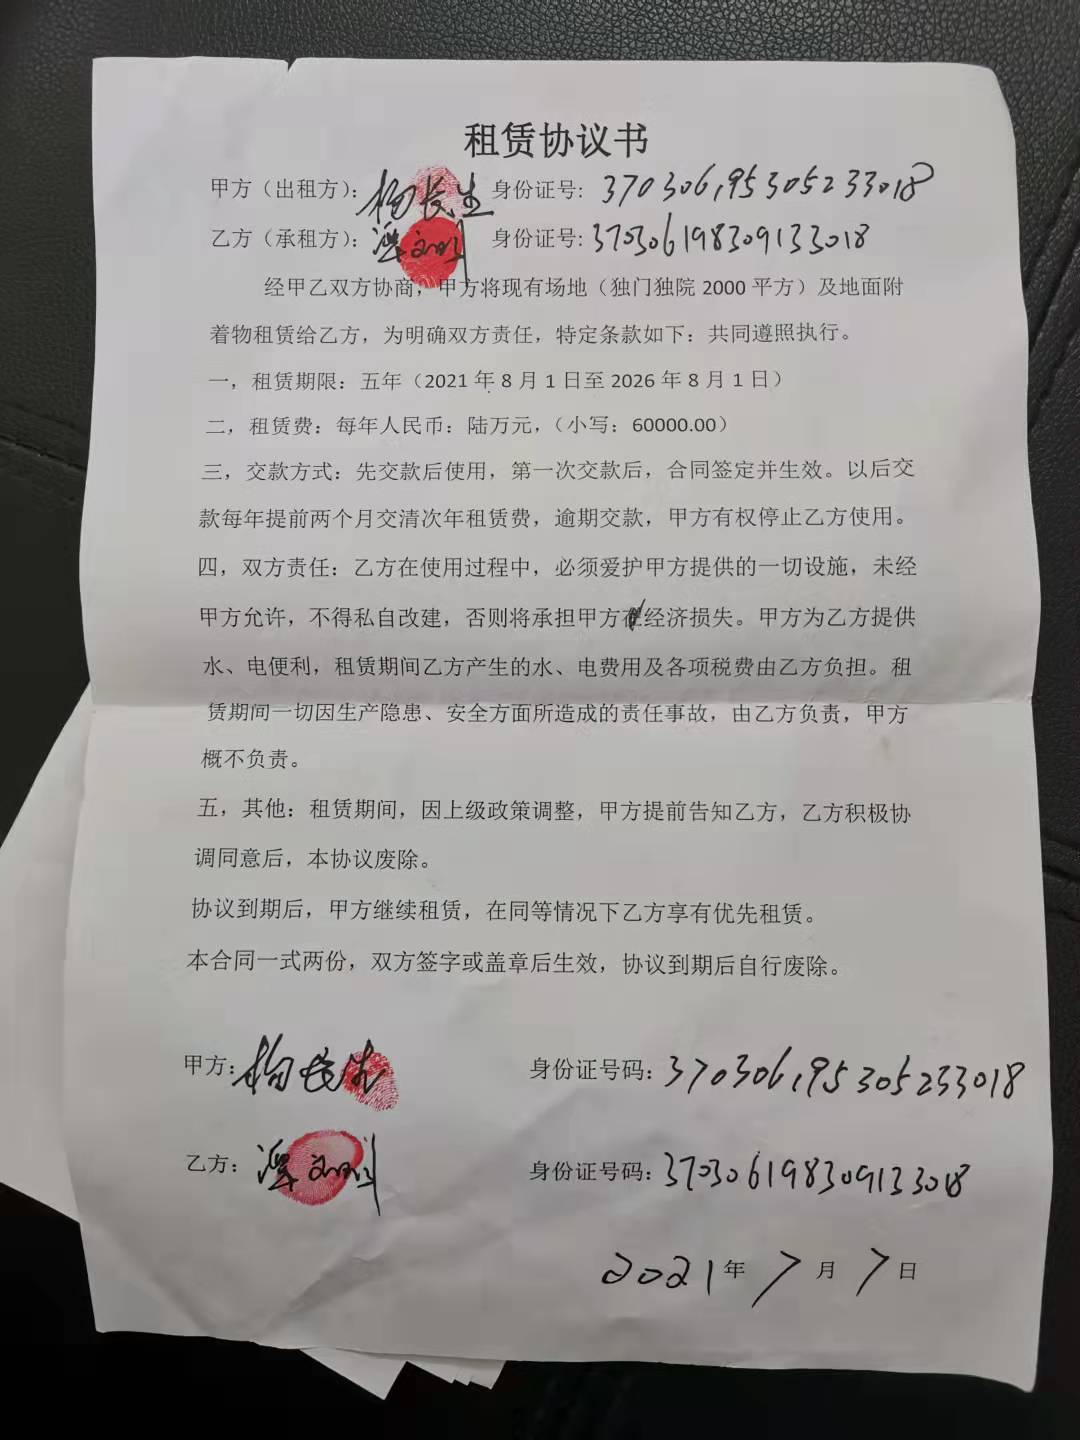 租赁协议书
甲方（出租方）：杨长生 身份证号：370306195305233018
乙方（承租方）：身份证号：370306198309133018
经甲乙双方协商，甲方将现有场地（独门独院 2000 平方）及地面附
着物租赁给乙方，为明确双方责任，特定条款如下：共同遵照执行。
一，租赁期限：五年（2021 年 8 月 1 日至 2026 年 8 月 1 日）
二，租赁费：每年人民币：陆万元，（小写：60000.00）
三，交款方式：先交款后使用，第一次交款后，合同签定并生效。以后交
款每年提前两个月交清次年租赁费，逾期交款，甲方有权停止乙方使用。
四，双方责任：乙方在使用过程中，必须爱护甲方提供的一切设施，未经
甲方允许，不得私自改建，否则将承担甲方经济损失。甲方为乙方提供
水、电便利，租赁期间乙方产生的水、电费用及各项税费由乙方负担。租
赁期间一切因生产隐患、安全方面所造成的责任事故，由乙方负责，甲方
概不负责。
五，其他：租赁期间，因上级政策调整，甲方提前告知乙方，乙方积极协
调同意后，本协议废除。
协议到期后，甲方继续租赁，在同等情况下乙方享有优先租赁。
本合同一式两份，双方签字或盖章后生效，协议到期后自行废除。
甲方：杨长生 身份证号码：370306195305233018
乙方：身份证号码：370306198309133018
2021 年 7 月 7 日